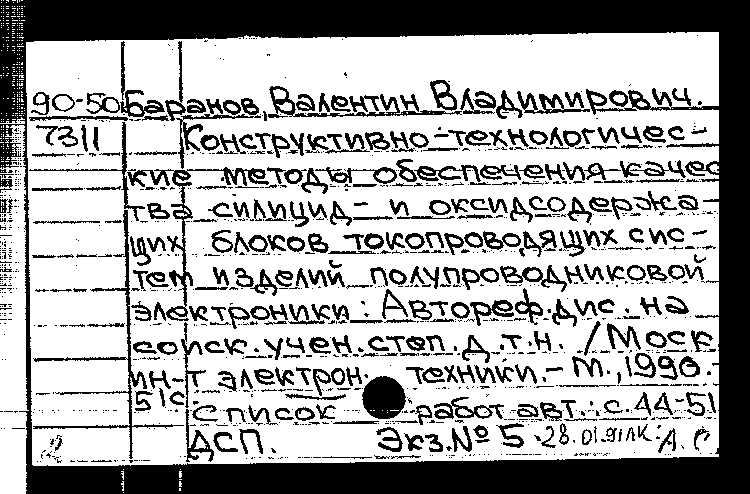 90-50 Баранов, Валентин Владимирович.
7311 Конструктивно-технологичес-
кие методы обеспечения качес
тва силицид- и оксидсодержа-
щих блоков токопроводящих сис-
тем изделий полупроводниковой
электроники: Автореф.дис. на
соиск.учен.степ.д.т.н. /Моск.
ин-т электрон. техники.-М.,1990.-
51с. Список работ авт.: с.44-51
2 ДСП. Экз.№ 5. 28.01.91ЛК: А.С